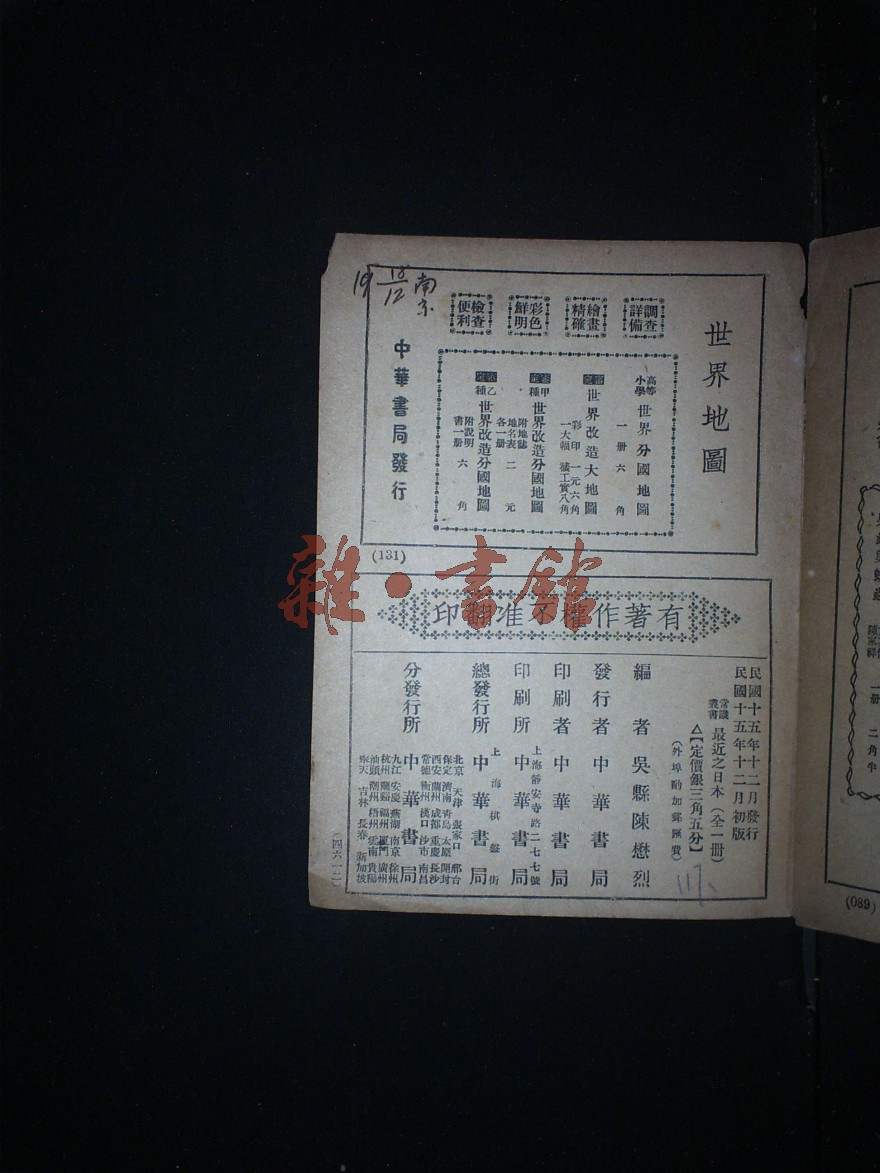 19 18/12 南京
世界地圖
調查詳備
繪畫精確
彩色鮮明
檢查便利
高等小學 世界分國地圖 一册 六角
世界改造大地圖 彩印一大幅 一元六角 裱工實八角
甲種 世界改造分國地圖 附地誌地名表各一册 二元
乙種 世界改造分國地圖 附說明書一册 六角
中華書局發行
(131)
雜·書館
有著作權不准翻印
民國十五年十二月發行
民國十五年十二月初版
常識叢書 最近之日本(全一冊)
△【定價銀三角五分】
(外埠酌加郵匯費)
編者 吳縣陳懋烈
發行者 中華書局
印刷者 中華書局
上海靜安寺路二七七號
印刷所 中華書局
上海棋盤街
總發行所 中華書局
分發行所 中華書局
北京 天津 張家口 邢台
保定 濟南 青島 太原 開封
西安 蘭州 成都 重慶 長沙
常德 衡州 漢口 沙市 南昌
九江 安慶 蕪湖 南京 徐州
杭州 蘭谿 福州 廈門 廣州
汕頭 潮州 梧州 雲南 貴陽
奉天 吉林 長春 新加坡
(四六一二)
一册 二角半
(089)